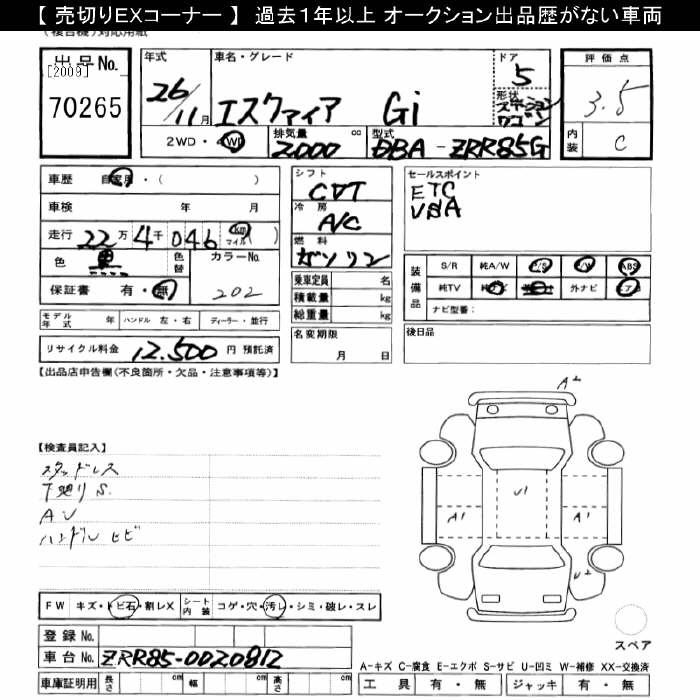 【 売切りEXコーナー 】 過去1年以上 オークション出品歴がない車両
(複合機)対応用紙
出品No. [2009] 70265
年式 26/11月
車名・グレード エスクァイア Gi
ドア 5
形状 ステーションワゴン
評価点 3.5
内装 C
2WD・4WD
排気量 2000 cc
型式 DBA-ZRR85G
車歴 自家用・( )
車検 年 月
走行 22万4千046 km マイル ( )
色 黒 色替 カラーNo. 202
保証書 有・無
モデル年式 年 ハンドル 左・右 ディーラー・並行
リサイクル料金 12,500 円 預託済
シフト CVT
冷房 A/C
燃料 ガソリン
乗車定員 名
積載量 kg
総重量 kg
名変期限 月 日
セールスポイント
ETC
装備品 S/R 純A/W P/S P/W ABS
純TV 外ナビ エアB
ナビ型番:
後日品
【出品店申告欄(不良箇所・欠品・注意事項等)】
【検査員記入】
スタッドレス
下廻り S.
AU
ハンドル ヒビ
A2
U1
A1
A1
U2
FW キズ・トビ石・割レX シート内装 コゲ・穴・汚レ・シミ・破レ・スレ
スペア
登録No.
車台No. ZRR85-0020812
A-キズ C-腐食 E-エクボ S-サビ U-凹ミ W-補修 XX-交換済
車庫証明用 長さ cm 幅 cm 高さ cm
工具 有・無 ジャッキ 有・無